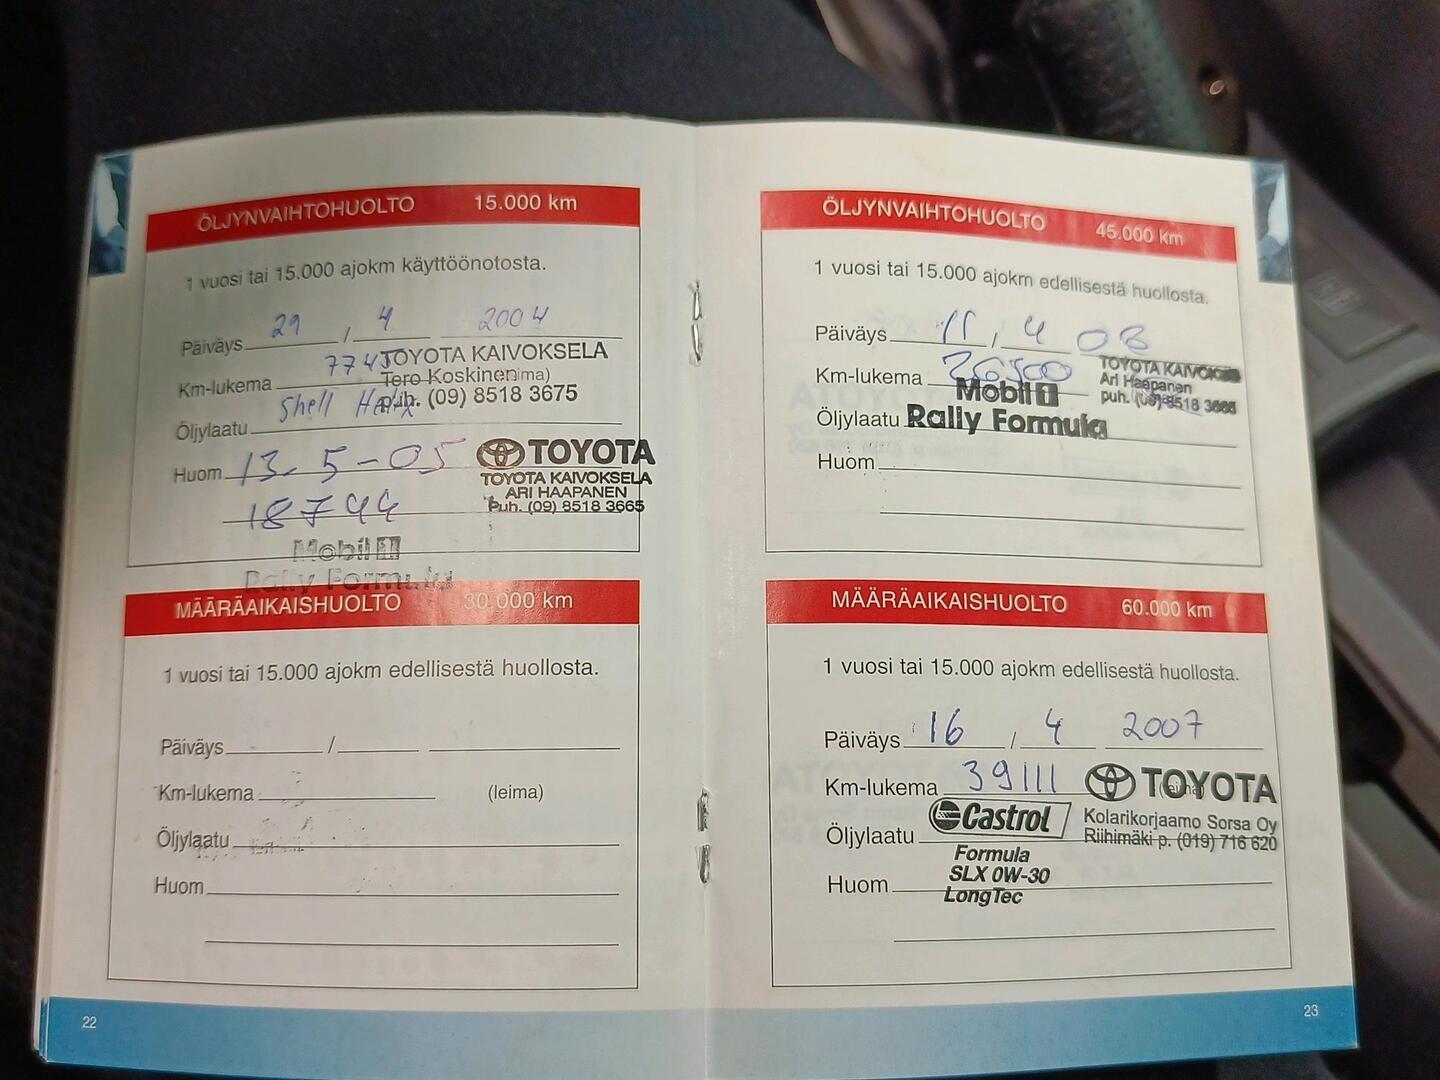 ÖLJYNVAIHTOHUOLTO 15.000 km
1 vuosi tai 15.000 ajokm käyttöönotosta.
Päiväys 29 / 4 2004
Km-lukema 7745 (leima)
TOYOTA KAIVOKSELA
Tero Koskinen
puh. (09) 8518 3675
Öljylaatu Shell Helix
Huom 13.5-05
18744
TOYOTA
TOYOTA KAIVOKSELA
ARI HAAPANEN
Puh. (09) 8518 3665
Mobil 1
Rally Formula
MÄÄRÄAIKAISHUOLTO 30.000 km
1 vuosi tai 15.000 ajokm edellisestä huollosta.
Päiväys /
Km-lukema (leima)
Öljylaatu
Huom
22
ÖLJYNVAIHTOHUOLTO 45.000 km
1 vuosi tai 15.000 ajokm edellisestä huollosta.
Päiväys 11 / 4 06
Km-lukema 26500
TOYOTA KAIVOKSELA
Ari Haapanen
puh. (09) 8518 3665
Öljylaatu Mobil 1
Rally Formula
Huom
MÄÄRÄAIKAISHUOLTO 60.000 km
1 vuosi tai 15.000 ajokm edellisestä huollosta.
Päiväys 16 / 4 2007
Km-lukema 39111 (leima)
TOYOTA
Kolarikorjaamo Sorsa Oy
Riihimäki p. (019) 716 620
Öljylaatu Castrol
Formula
SLX 0W-30
LongTec
Huom
23